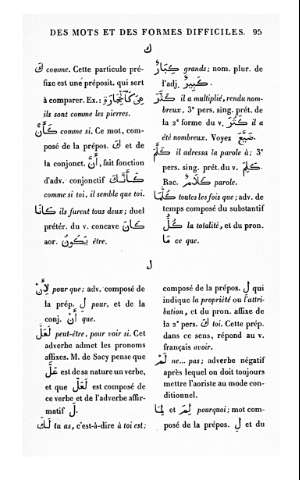 DES MOTS ET DES FORMES DIFFICILES. 95
ك
كَ comme. Cette particule pré-
fixe est une préposit. qui sert
à comparer. Ex.: هِيَ كَالْحِجَارَةِ
ils sont comme les pierres.
كَأَنَّ comme si. Ce mot, com-
posé de la prépos. كَ et de
la conjonct. أَنَّ, fait fonction
d'adv. conjonctif كَأَنَّكَ
comme si toi, il semble que toi.
كَانَا ils furent tous deux; duel
prétér. du v. concave كَانَ
aor. يَكُونُ être.
كِبَارٌ grands; nom. plur. de
l'adj. كَبِيرٌ.
كَثَّرَ il a multiplié, rendu nom-
breux. 3e pers. sing. prét. de
la 2e forme du v. كَثُرَ il a
été nombreux. Voyez
كَلَّمَ il adressa la parole à; 3e
pers. sing. prét. du v. كَلَّمَ.
Rac. كَلَامٌ parole.
كُلَّمَا toutes les fois que; adv. de
temps composé du substantif
كُلٌّ la totalité, et du pron.
مَا ce que.
ل
لِأَنَّ pour que; adv. composé de
la prép. لِ pour, et de la
conj. أَنَّ que.
لَعَلَّ peut-être, pour voir si. Cet
adverbe admet les pronoms
affixes. M. de Sacy pense que
عَلَّ est de sa nature un verbe,
et que لَعَلَّ est composé de
ce verbe et de l'adverbe affir-
matif لَ.
لَكَ tu as, c'est-à-dire à toi est;
composé de la prépos. لِ qui
indique la propriété ou l'attri-
bution, et du pron. affixe de
la 2e pers. كَ toi. Cette prép.
dans ce sens, répond au v.
français avoir.
لَمْ ne... pas; adverbe négatif
après lequel on doit toujours
mettre l'aoriste au mode con-
ditionnel.
لِمَا et لِمَ pourquoi; mot com-
posé de la prépos. لِ et du